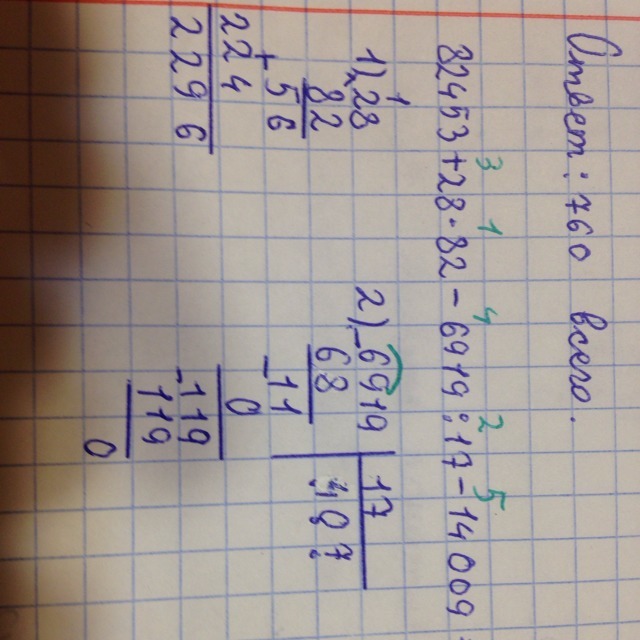 Ответ: 760 всего.
3 1 4 2 5
82453+28·82-6919:17-14009
1) 28
1
82
56
+
224
2296
2) -6919 | 17
68 407
-11
0
-119
119
0